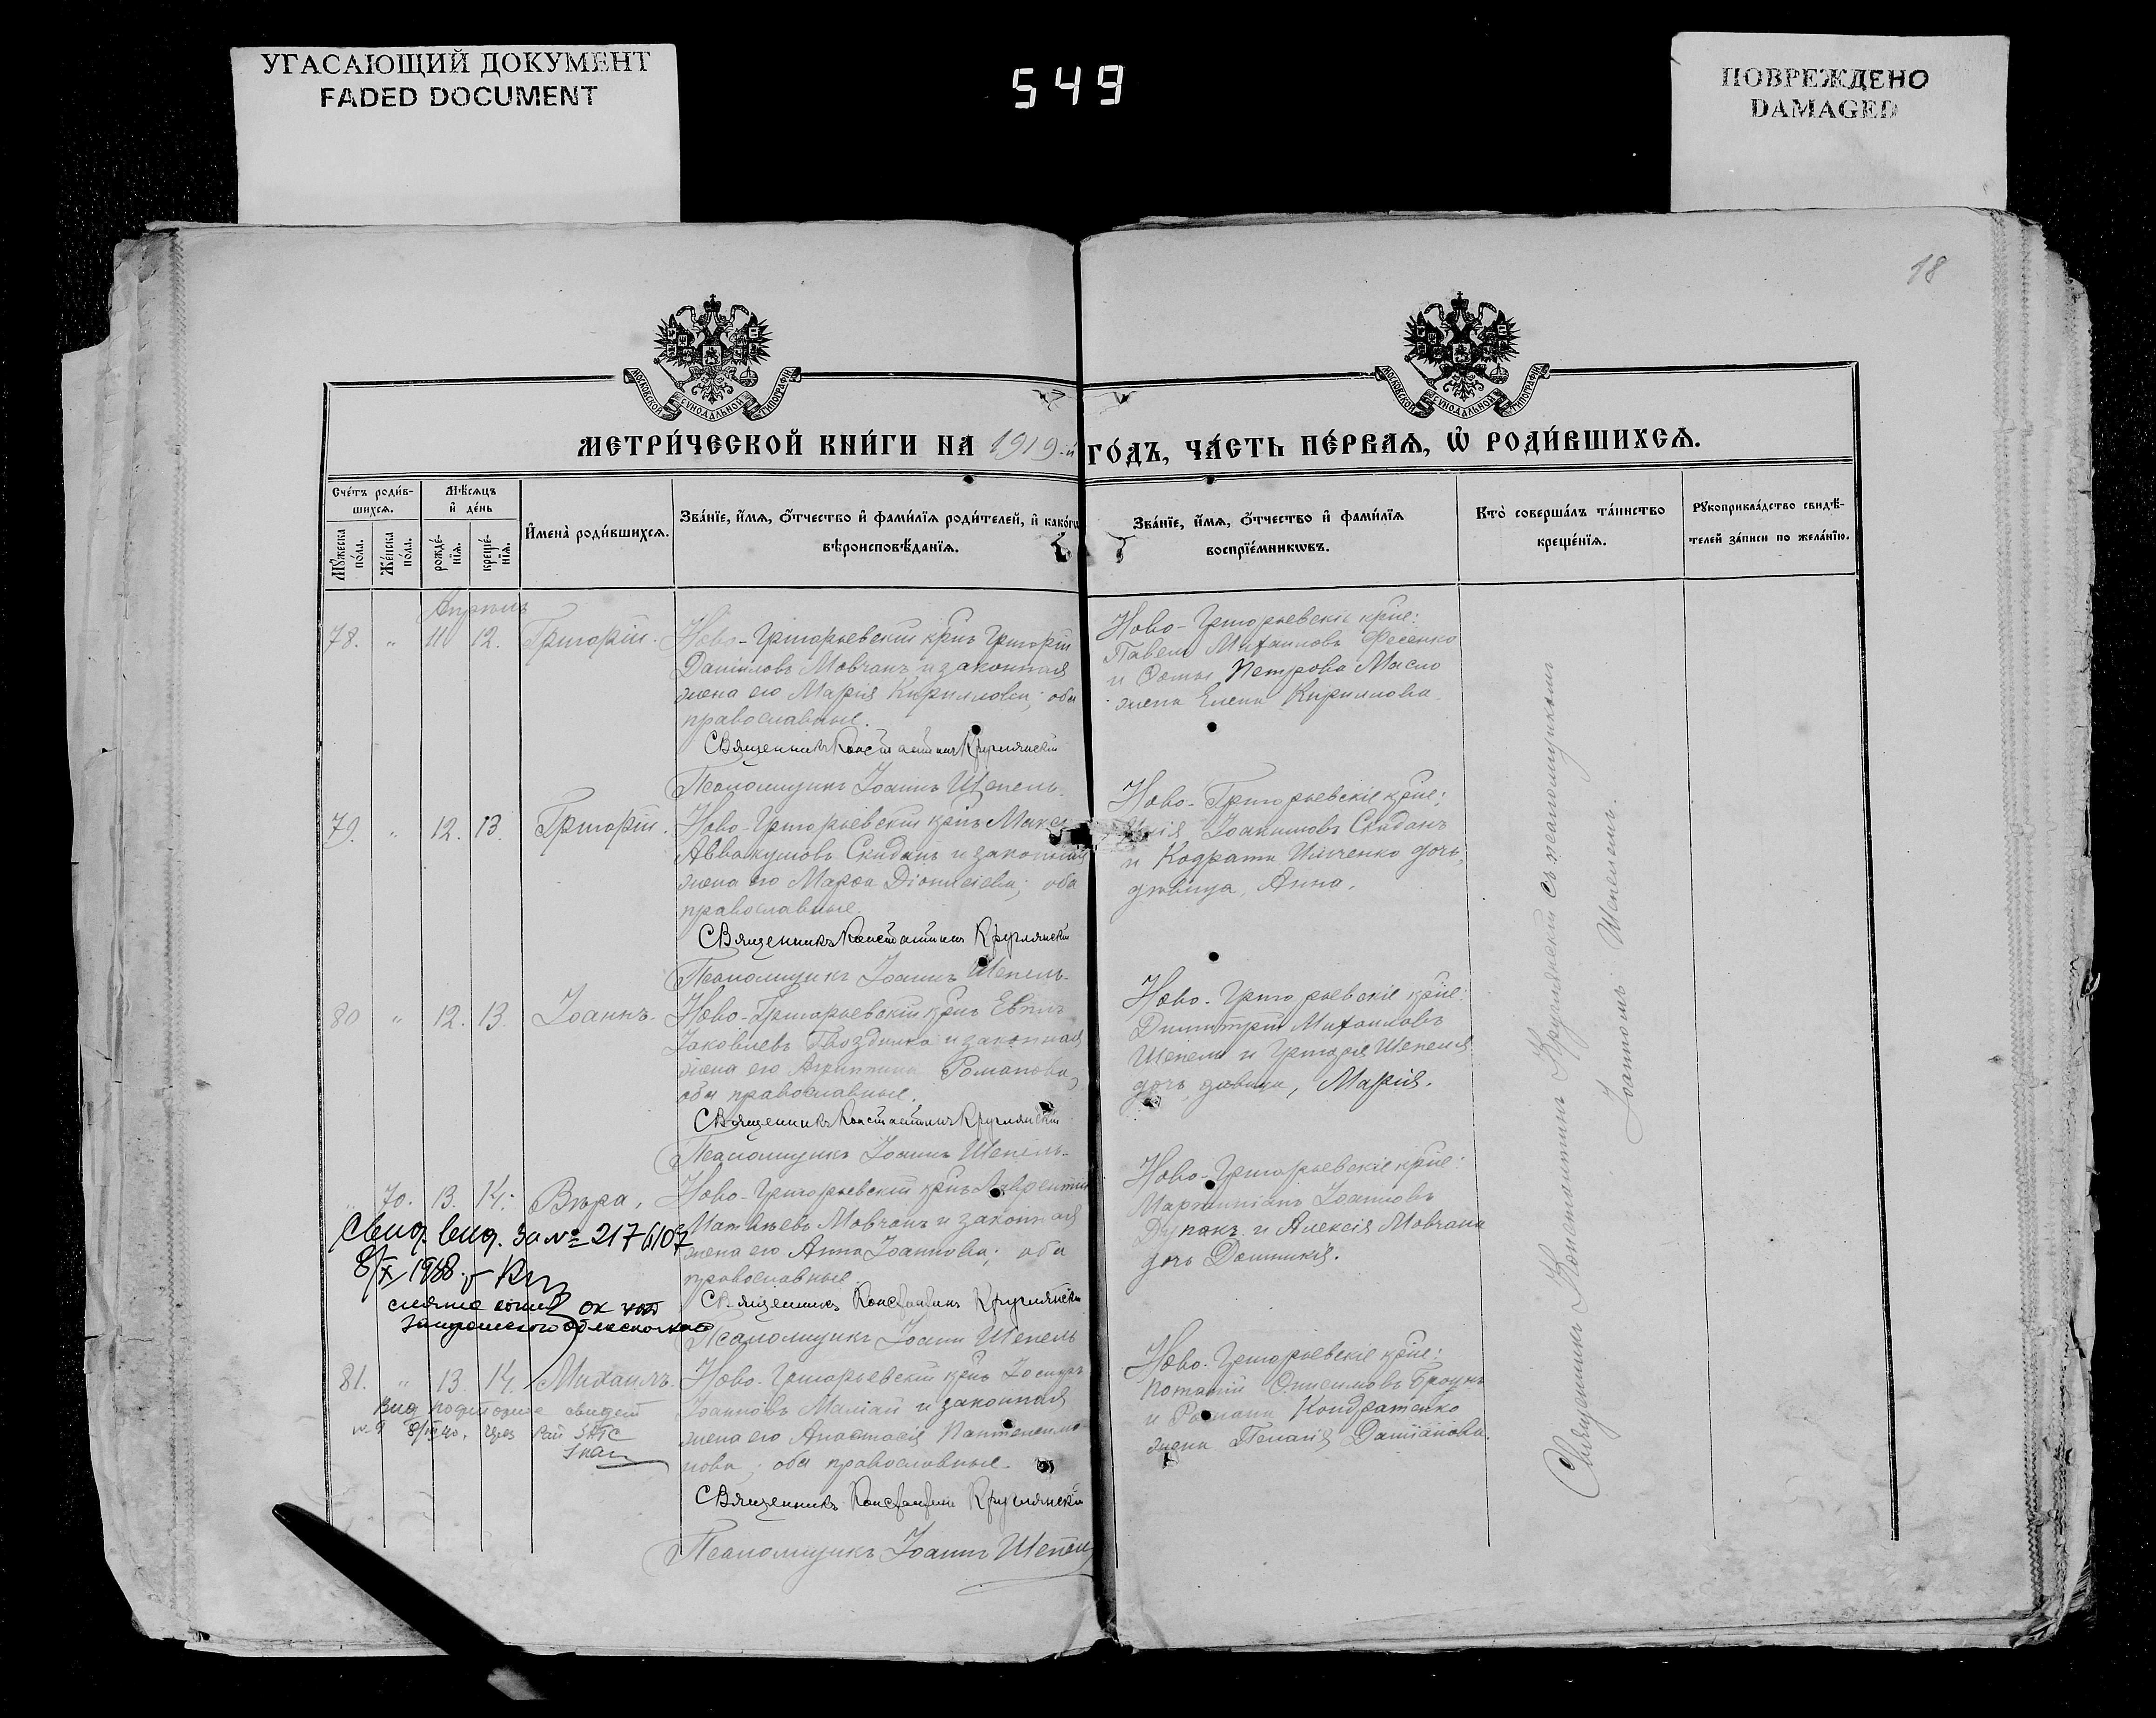 УГАСАЮЩИЙ ДОКУМЕНТ
FADED DOCUMENT
549
ПОВРЕЖДЕНО
DAMAGED
18
МОСКОВСКОЙ СѴНОДАЛЬНОЙ ТИПОГРАФІИ
МОСКОВСКОЙ СѴНОДАЛЬНОЙ ТИПОГРАФІИ
МЕТРИ́ЧЕСКОЙ КНИ́ГИ НА 1919-й ГО́ДЪ, ЧА́СТЬ ПЕ́РВАѦ, Ѽ РОДИ́ВШИХСѦ.
Сче́тъ роди́в-
шихсѧ.
Мꙋжеска по́ла.
Же́нска по́ла.
Мѣ́сѧцъ
и҆ де́нь
рожде́-
нїѧ.
креще́-
нїѧ.
И҆мена̀ роди́вшихсѧ.
Зва́нїе, и҆́мѧ, ѻ҆́тчество и҆ фами́лїѧ роди́телей, и҆ како́гѡ
вѣроисповѣ́данїѧ.
Зва́нїе, и҆́мѧ, ѻ҆́тчество и҆ фами́лїѧ
воспрїе́мникѡвъ.
Кто̀ соверша́лъ та́инство
креще́нїѧ.
Рꙋкоприкла́дство свидѣ́-
телей за́писи по жела́нїю.
Апрѣль
78. " 11 12. Григорій.
Ново-Григорьевскій крнъ Григорій
Даніиловъ Мовчанъ и законная
жена его Марія Кириллова; оба
православные.
Священникъ Константинъ Круглянскій
Псаломщикъ Іоаннъ Шепель.
Ново-Григорьевскіе крне:
Павелъ Михаиловъ Фесенко
и Ѳомы Петрова Масло
жена Елена Кириллова.
79. " 12. 13. Григорій.
Ново-Григорьевскій крнъ
Аввакумовъ Скиданъ и законная
жена его Марѳа Діонисіева; оба
православные.
Священникъ Константинъ Круглянскій
Псаломщикъ Іоаннъ Шепель.
Ново-Григорьевскіе крне:
Іоакимовъ Скиданъ
и Кодрата Ильченко дочь,
дѣвица, Анна.
80 " 12. 13. Іоаннъ.
Ново-Григорьевскій крнъ
Іаковлевъ Гвоздилка и законная
жена его Агриппина Романова,
оба православные.
Священникъ Константинъ Круглянскій
Псаломщикъ Іоаннъ Шепель.
Ново-Григорьевскіе крне:
Димитрій Михаиловъ
Шепель и Григорія Шепеля
дочь дѣвица, Марія.
" 70. 13. 14. Вѣра.
Ново-Григорьевскій крнъ Лаврентій
Матвѣевъ Мовчанъ и законная
жена его Анна Іоаннова; оба
православные.
Священникъ Константинъ Круглянскій
Псаломщикъ Іоаннъ Шепель
Ново-Григорьевскіе крне:
Мартиніанъ Іоанновъ
и Алексія Мовчана
дочь Домникія.
Свид. выд. за № 2176107
8/X 1968.
81. " 13. 14. Михаилъ.
Ново-Григорьевскій крнъ Іосифъ
Іоанновъ Малій и законная
жена его Анастасія Пантелеимо-
нова; оба православные.
Священникъ Константинъ Круглянскій
Псаломщикъ Іоаннъ Шепель
Ново-Григорьевскіе крне:
Потапій Онисимовъ
и Романа Кондратенко
жена Пелагія Даміанова.
Священникъ Константинъ Круглянскій съ псаломщикомъ
Іоанномъ Шепелемъ.